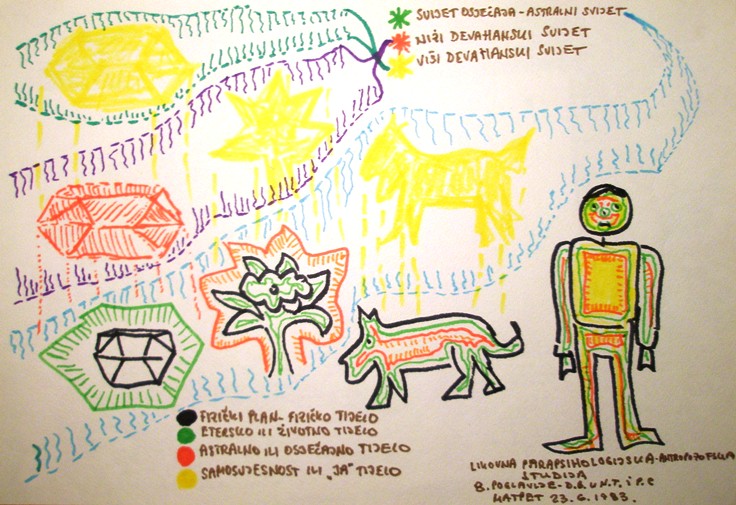 SVIJET OSJEĆAJA - ASTRALNI SVIJET
NIŽI DEVAHANSKI SVIJET
VIŠI DEVAHANSKI SVIJET
FIZIČKI PLAN - FIZIČKO TIJELO
ETERSKO ILI ŽIVOTNO TIJELO
ASTRALNO ILI OSJEĆAJNO TIJELO
SAMOSVJESNOST ILI „JA" TIJELO
LIKOVNA PARAPSIHOLOGIJSKA - ANTROPOZOFSKA
STUDIJA
8. POGLAVLJE - D.B. U N.T. i P.C
23.6.1983.